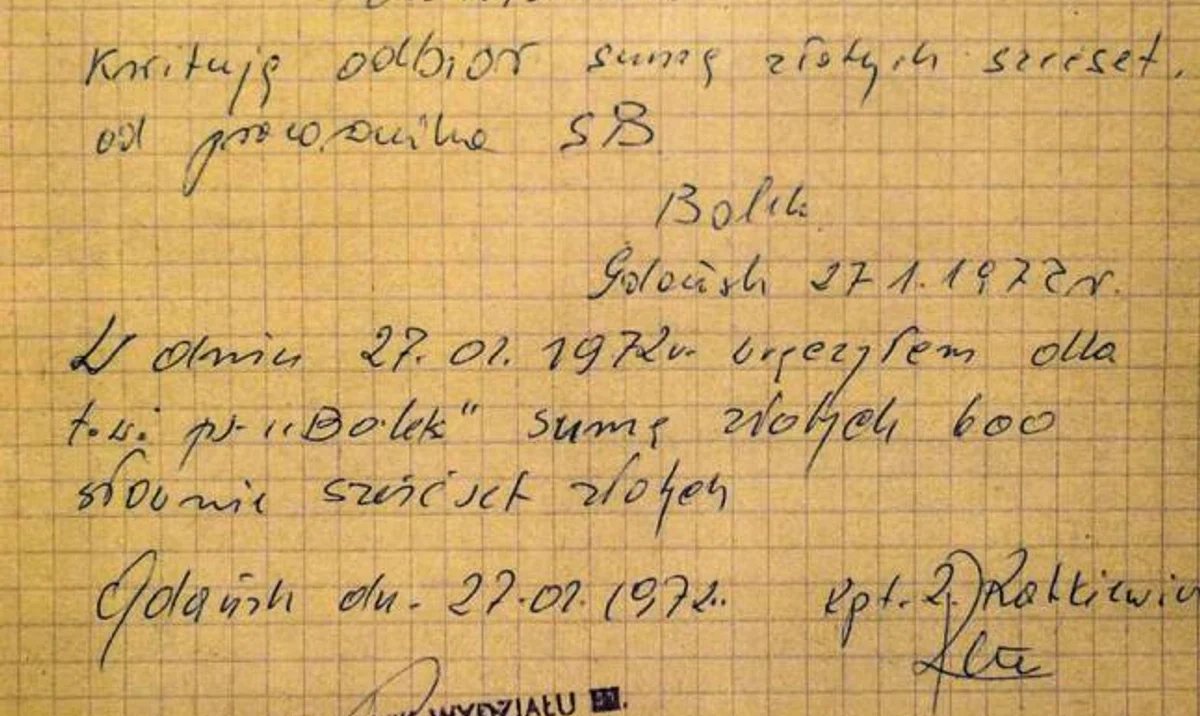 Kwituję odbior sumę złotych sześset.
od pracownika SB
Bolek
Gdańsk 27 1. 1972 r.
W dniu 27.01.1972r. wręczyłem dla
t.w. ps. "Bolek" sumę złotych 600
słownie sześćset złotych
Gdańsk dn. 27.01.1972r. kpt. Z. Ratkiewicz
WYDZIAŁU III.